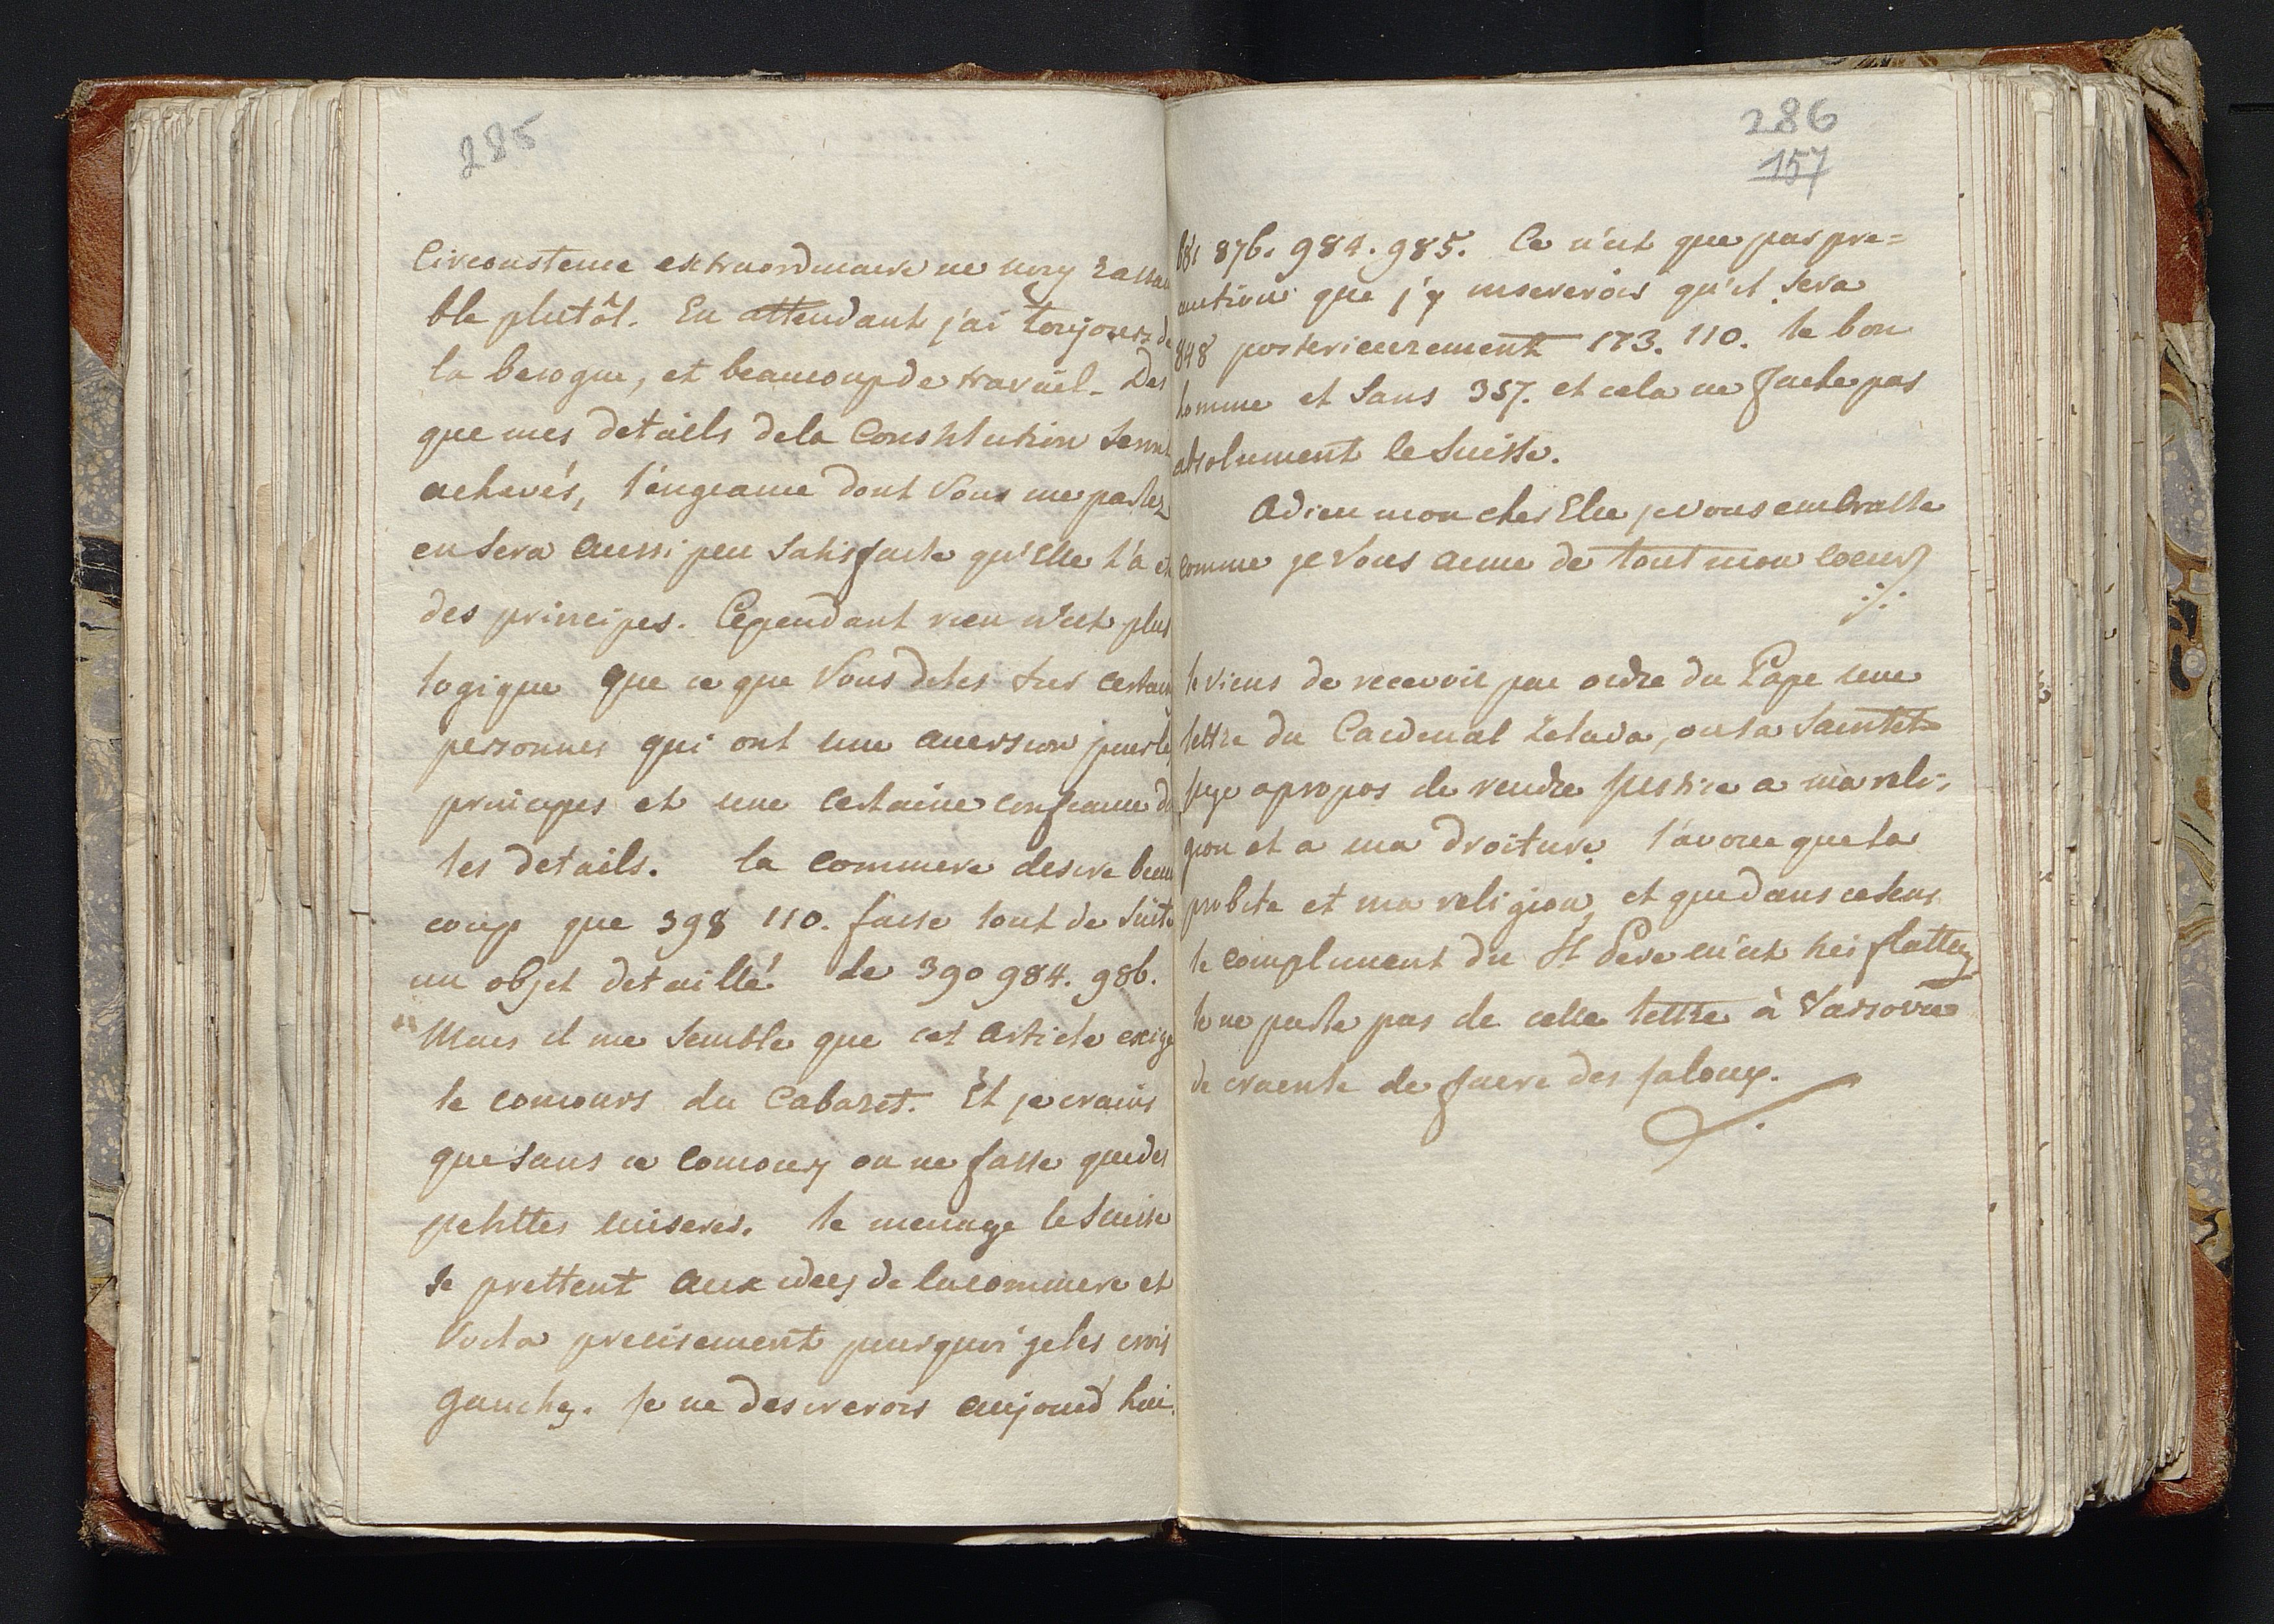 285
Circonstence extraordinaire ne nous rassem
ble plutôt. En attendant j'ai toujours de
la besogne, et beaucoup de travail. Des
que mes details de la Constitution seront
achevés, l'engeance dont Vous me parlez
en sera aussi peu satisfaite qu'Elle l'a été
des principes. Cependant rien n'est plus
logique que ce que Vous dites sur certaines
personnes qui ont une aversion pour les
principes et une certaine confiance de
les details. la Commere desire beau
coup que 398 110. fasse tout de suite
un objet detaillé de 390 984. 986.
Mais il me semble que cet article exige
le concours du Cabaret. Et je crains
que sans ce concours on ne fasse que des
petittes miseres. le menage le Suisse
se prettent aux idees de la commere et
Voila precisement pourquoi je les crois
gauches. Je ne desirerois aujourd'hui
286
157
876. 984. 985. Ce n'est que par pre=
caution que j'y insererois qu'il sera
848 posterieurement 173. 110. le bon
homme et sans 357. et cela ne fache pas
absolument le Suisse.
Adieu mon cher Elie je Vous embrasse
comme je Vous aime de tout mon Coeur
./.
Je viens de recevoir par ordre du Pape une
lettre du Cardinal Zelada, ou sa Sainteté
juge apropos de rendre justice a ma reli-
gion et a ma droiture. J'avoue que la
probite et ma religion, et que dans ce sens
le compliment du St Pere m'est tres flatteur
Je ne parle pas de cette lettre à Varsovie
de crainte de faire des jaloux.